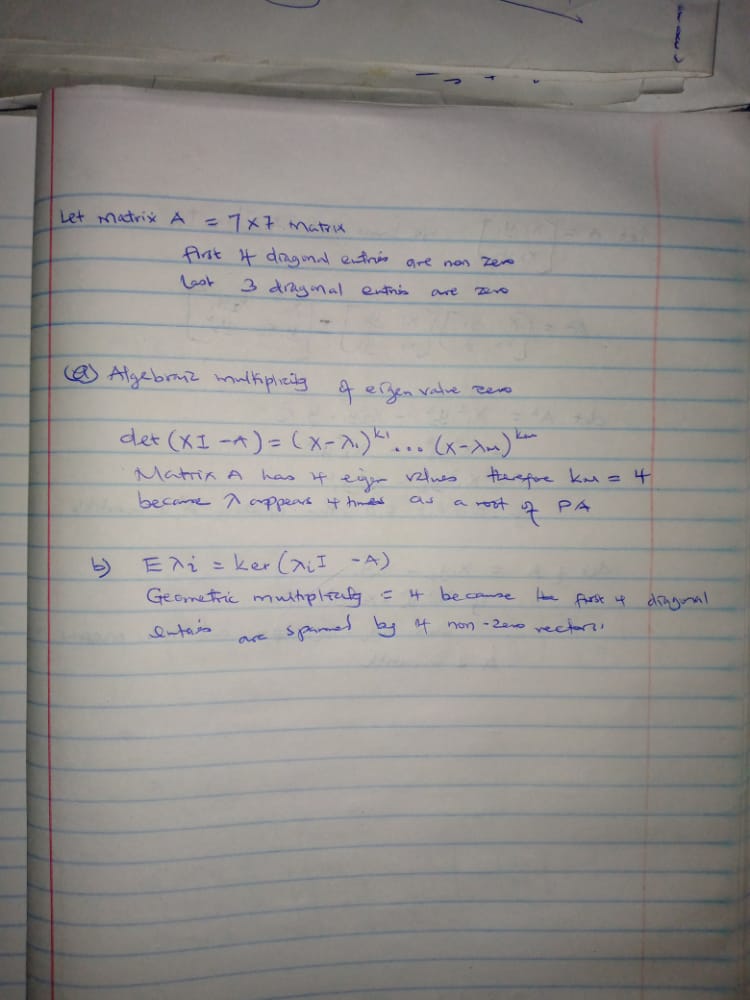 Let matrix A = 7 x 7 matrix
first 4 diagonal entries are non zero
Last 3 diagonal entries are zero
(a) Algebraic multiplicity of eigen value zero
det (XI - A) = (X - λ₁)^k₁ ... (X - λₘ)^kₘ
Matrix A has 4 eigen values therefore kₘ = 4
because λ appears 4 times as a root of PA
b) Eλi = ker (λᵢI - A)
Geometric multiplicity = 4 because the first 4 diagonal
entries are spanned by 4 non-zero vectors.